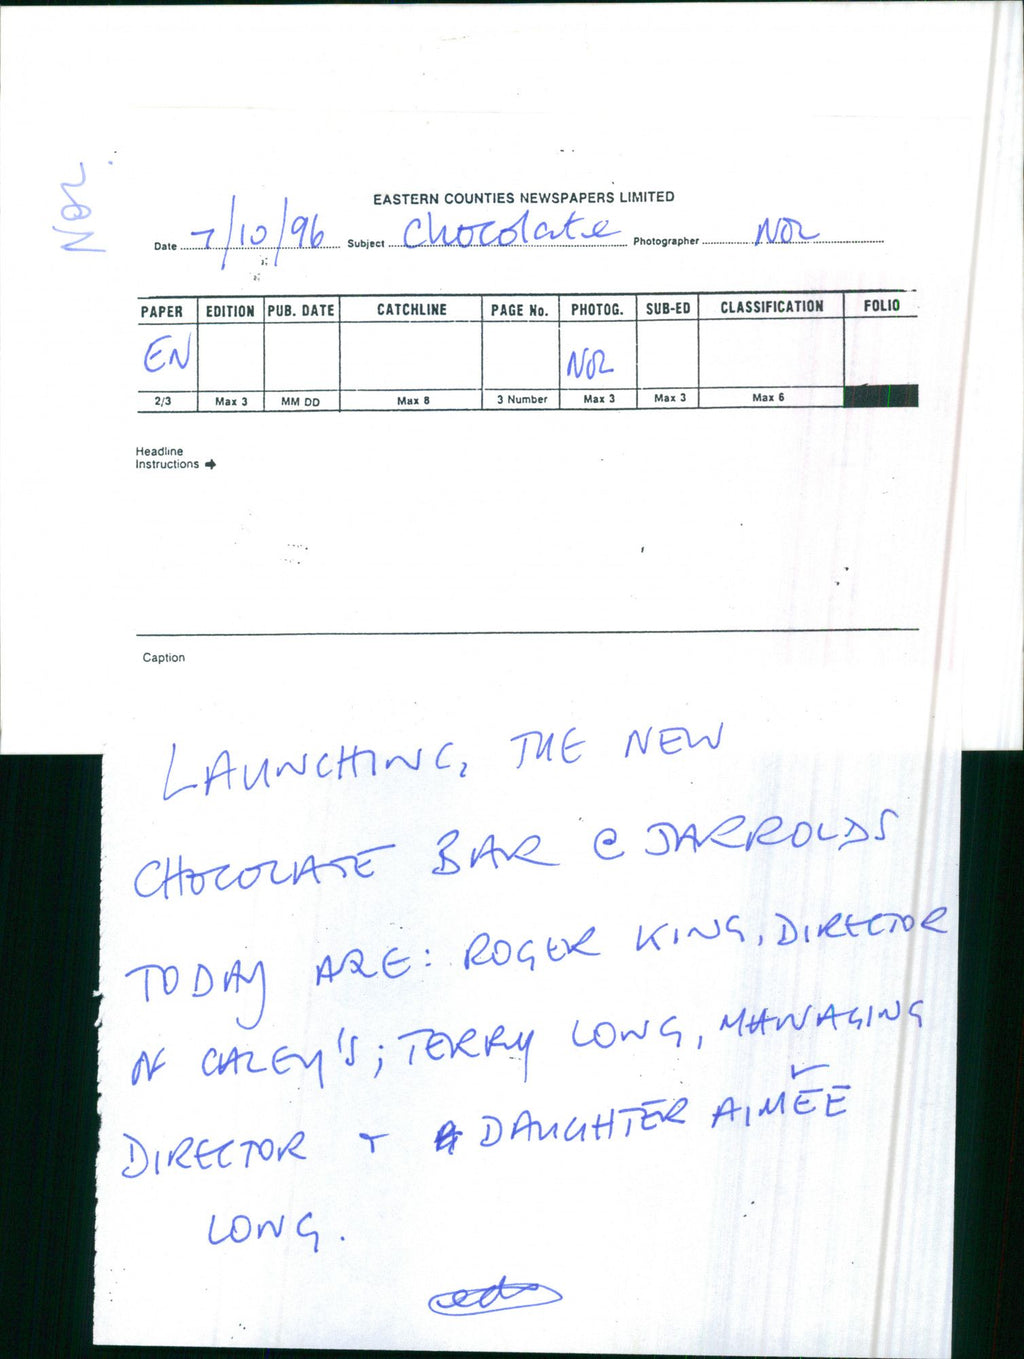 Nor
EASTERN COUNTIES NEWSPAPERS LIMITED
Date 7/10/96 Subject Chocolate Photographer NOR
PAPER EDITION PUB. DATE CATCHLINE PAGE No. PHOTOG. SUB-ED CLASSIFICATION FOLIO
EN NOR
2/3 Max 3 MM DD Max 8 3 Number Max 3 Max 3 Max 6
Headline
Instructions →
Caption
LAUNCHING, THE NEW
CHOCOLATE BAR @ JARROLDS
TODAY ARE: ROGER KING, DIRECTOR
OF CALEY'S; TERRY LONG, MANAGING
DIRECTOR + DAUGHTER AIMÉE
LONG.
eds